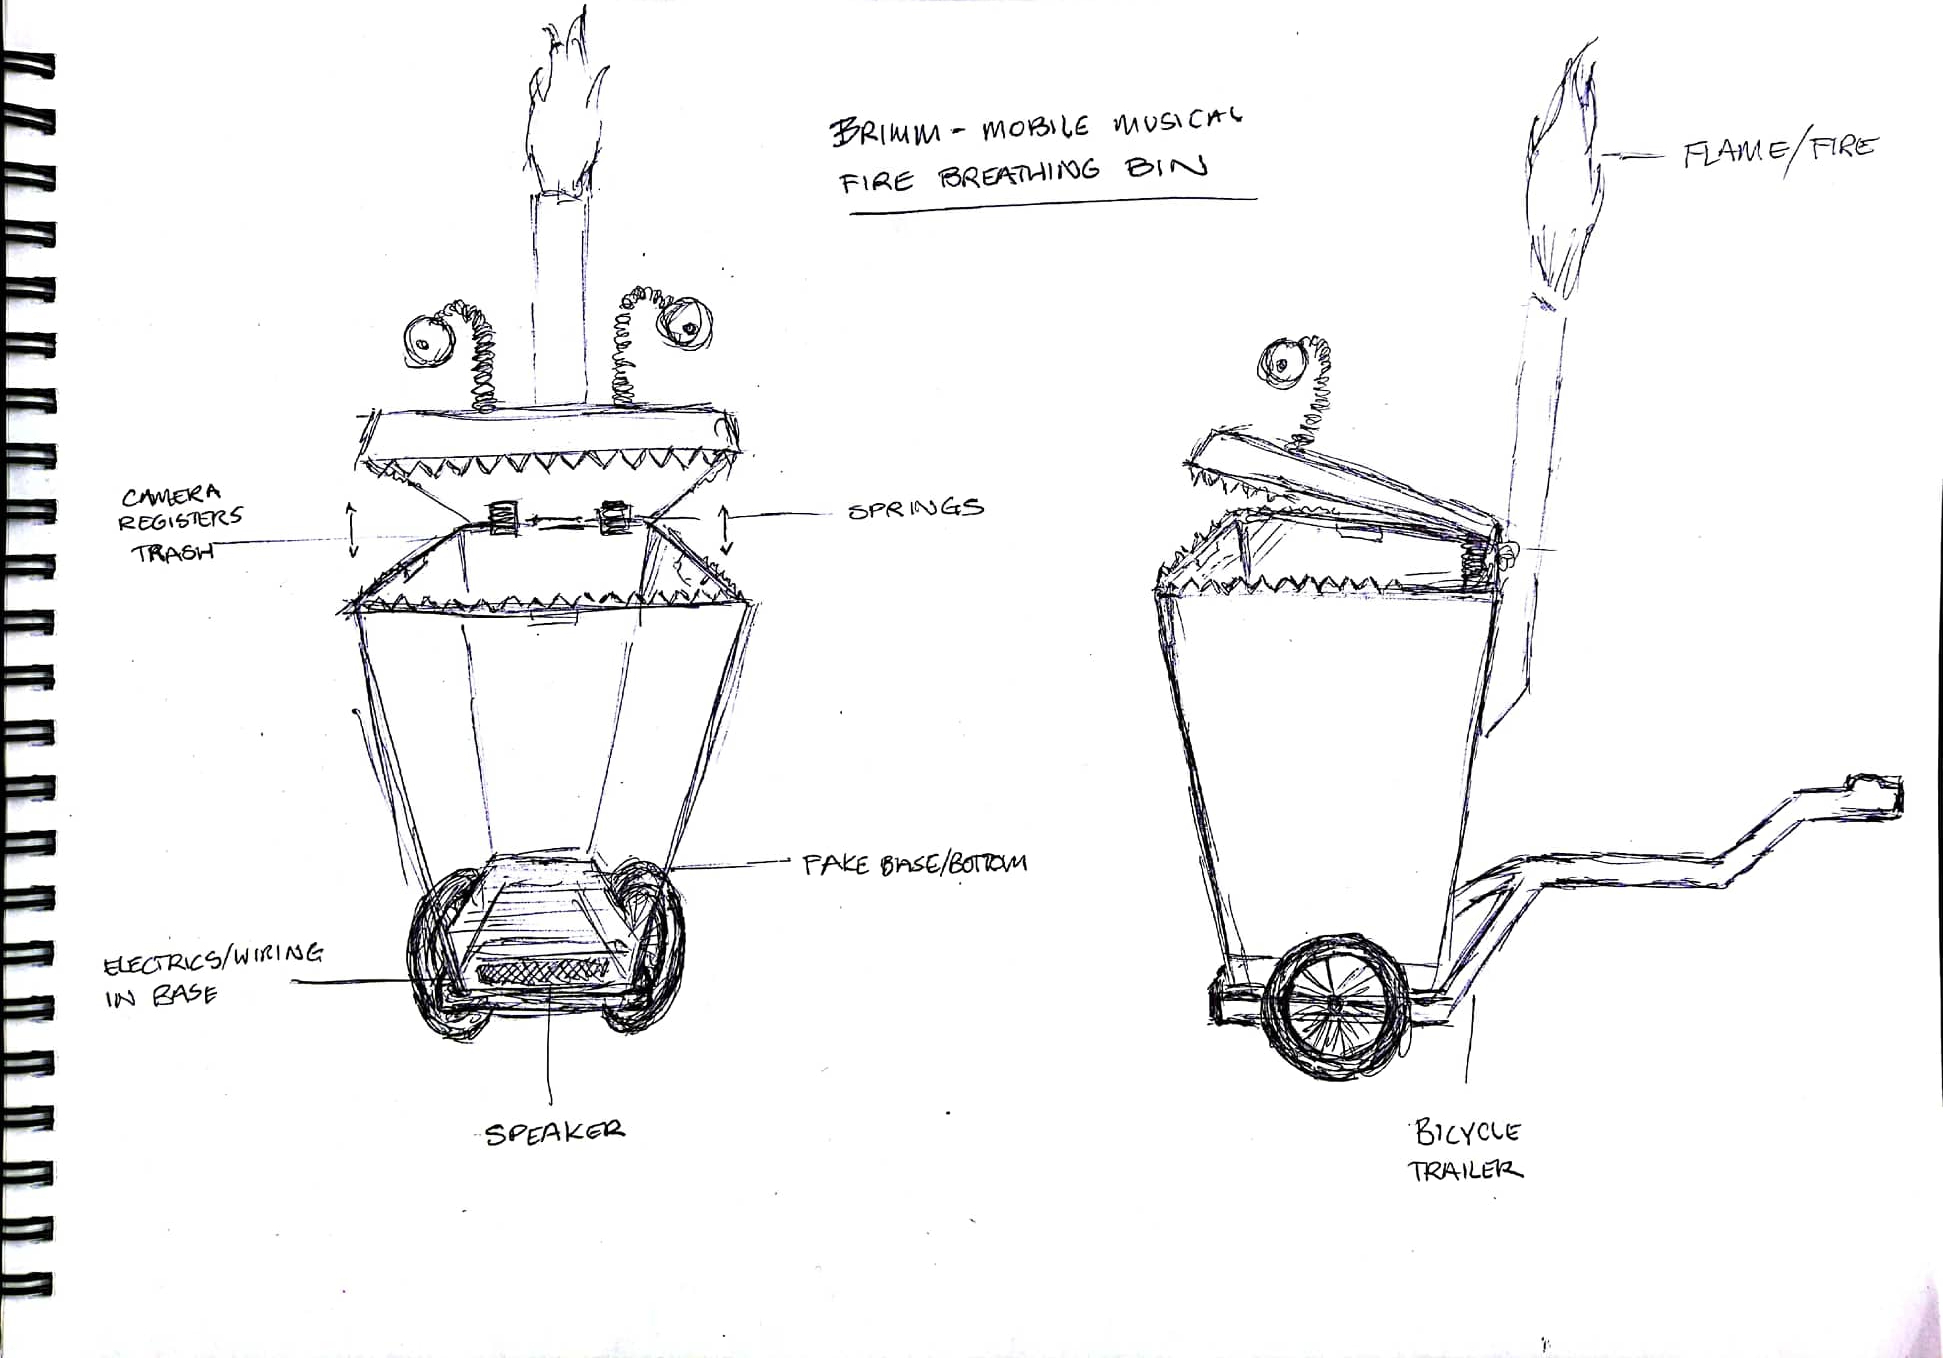 BRIMM - MOBILE MUSICAL
FIRE BREATHING BIN
FLAME/FIRE
CAMERA
REGISTERS
TRASH
SPRINGS
FAKE BASE/BOTTOM
ELECTRICS/WIRING
IN BASE
SPEAKER
BICYCLE
TRAILER